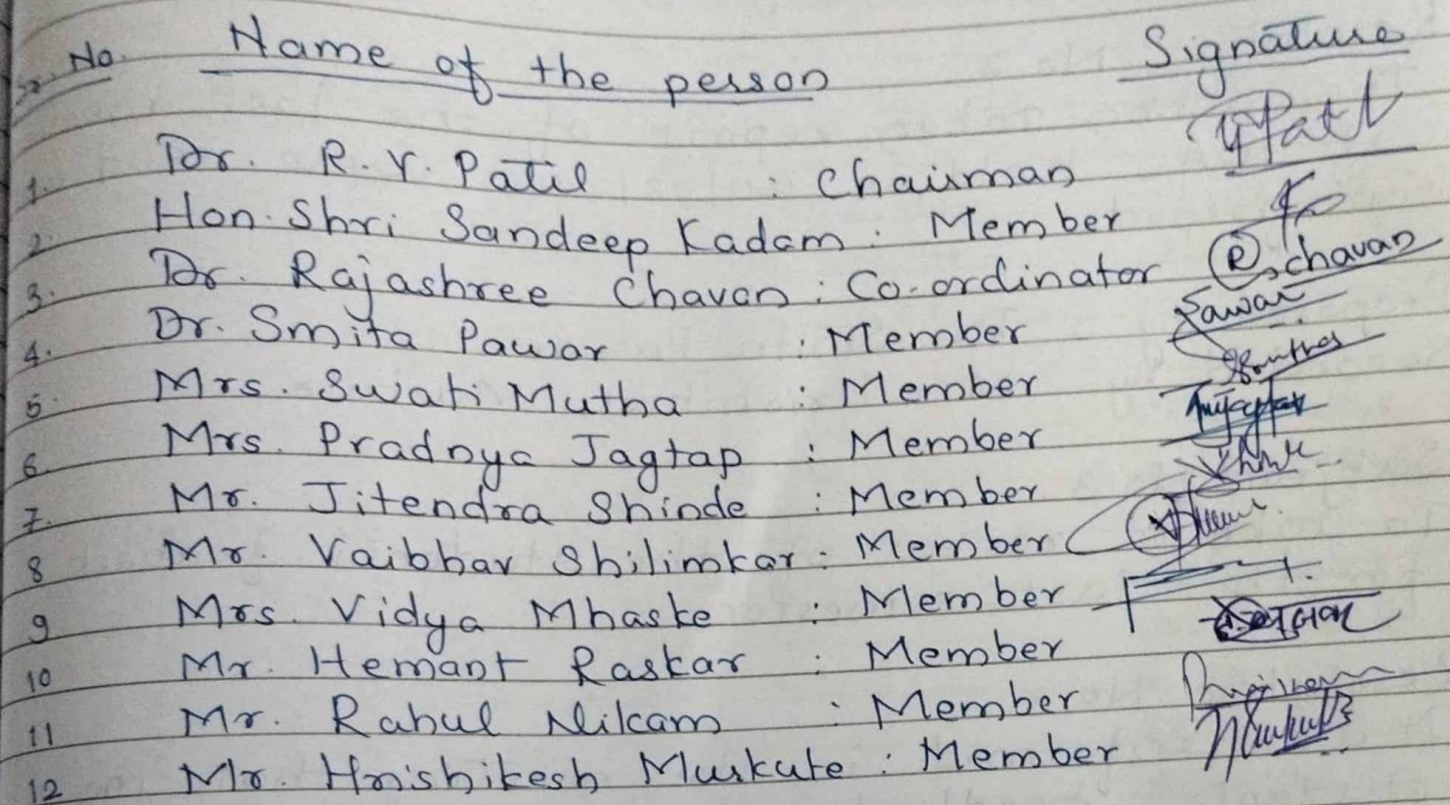 Sr. No. Name of the person Signature
1. Dr. R. Y. Patil : Chairman
2. Hon. Shri Sandeep Kadam : Member
3. Dr. Rajashree Chavan : Co-ordinator R. Chavan
4. Dr. Smita Pawar : Member Pawar
5. Mrs. Swati Mutha : Member
6. Mrs. Pradnya Jagtap : Member
7. Mr. Jitendra Shinde : Member
8 Mr. Vaibhav Shilimkar : Member
9 Mrs. Vidya Mhaske : Member
10 Mr. Hemant Raskar : Member
11 Mr. Rahul Nikam : Member
12 Mr. Hrishikesh Murkute : Member